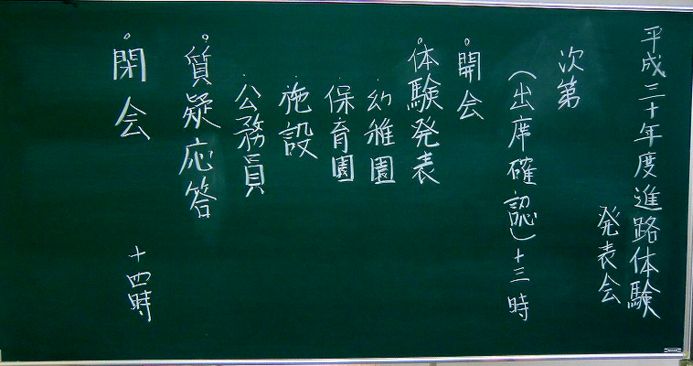 平成三十年度進路体験
発表会
次第
(出席確認)十三時
○開会
○体験発表
・幼稚園
・保育園
・施設
・公務員
○質疑応答
○閉会 十四時